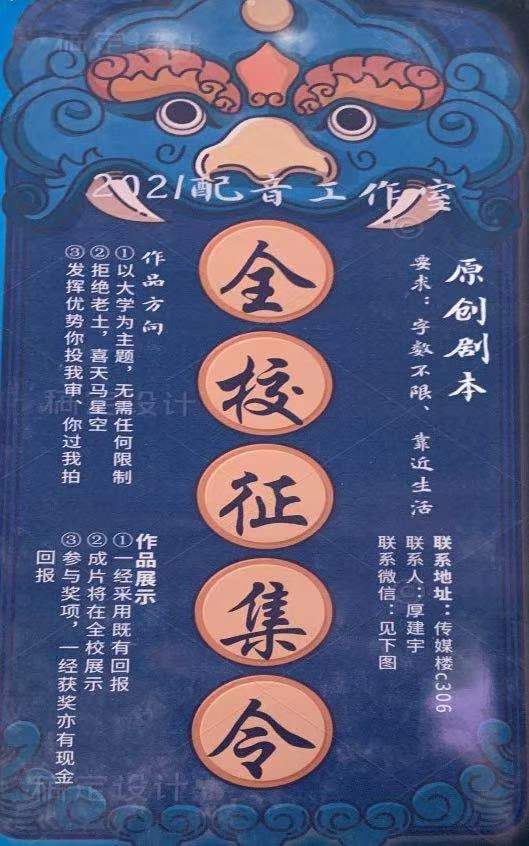 2021配音工作室
全校征集令
原创剧本
要求：字数不限、靠近生活
作品方向
①以大学为主题，无需任何限制
②拒绝老土，喜天马星空
③发挥优势你投我审、你过我拍
联系地址：传媒楼c306
联系人：厚建宇
联系微信：见下图
作品展示
①一经采用既有回报
②成片将在全校展示
③参与奖项，一经获奖亦有现金
回报
稿定设计
稿定设计
稿定设计